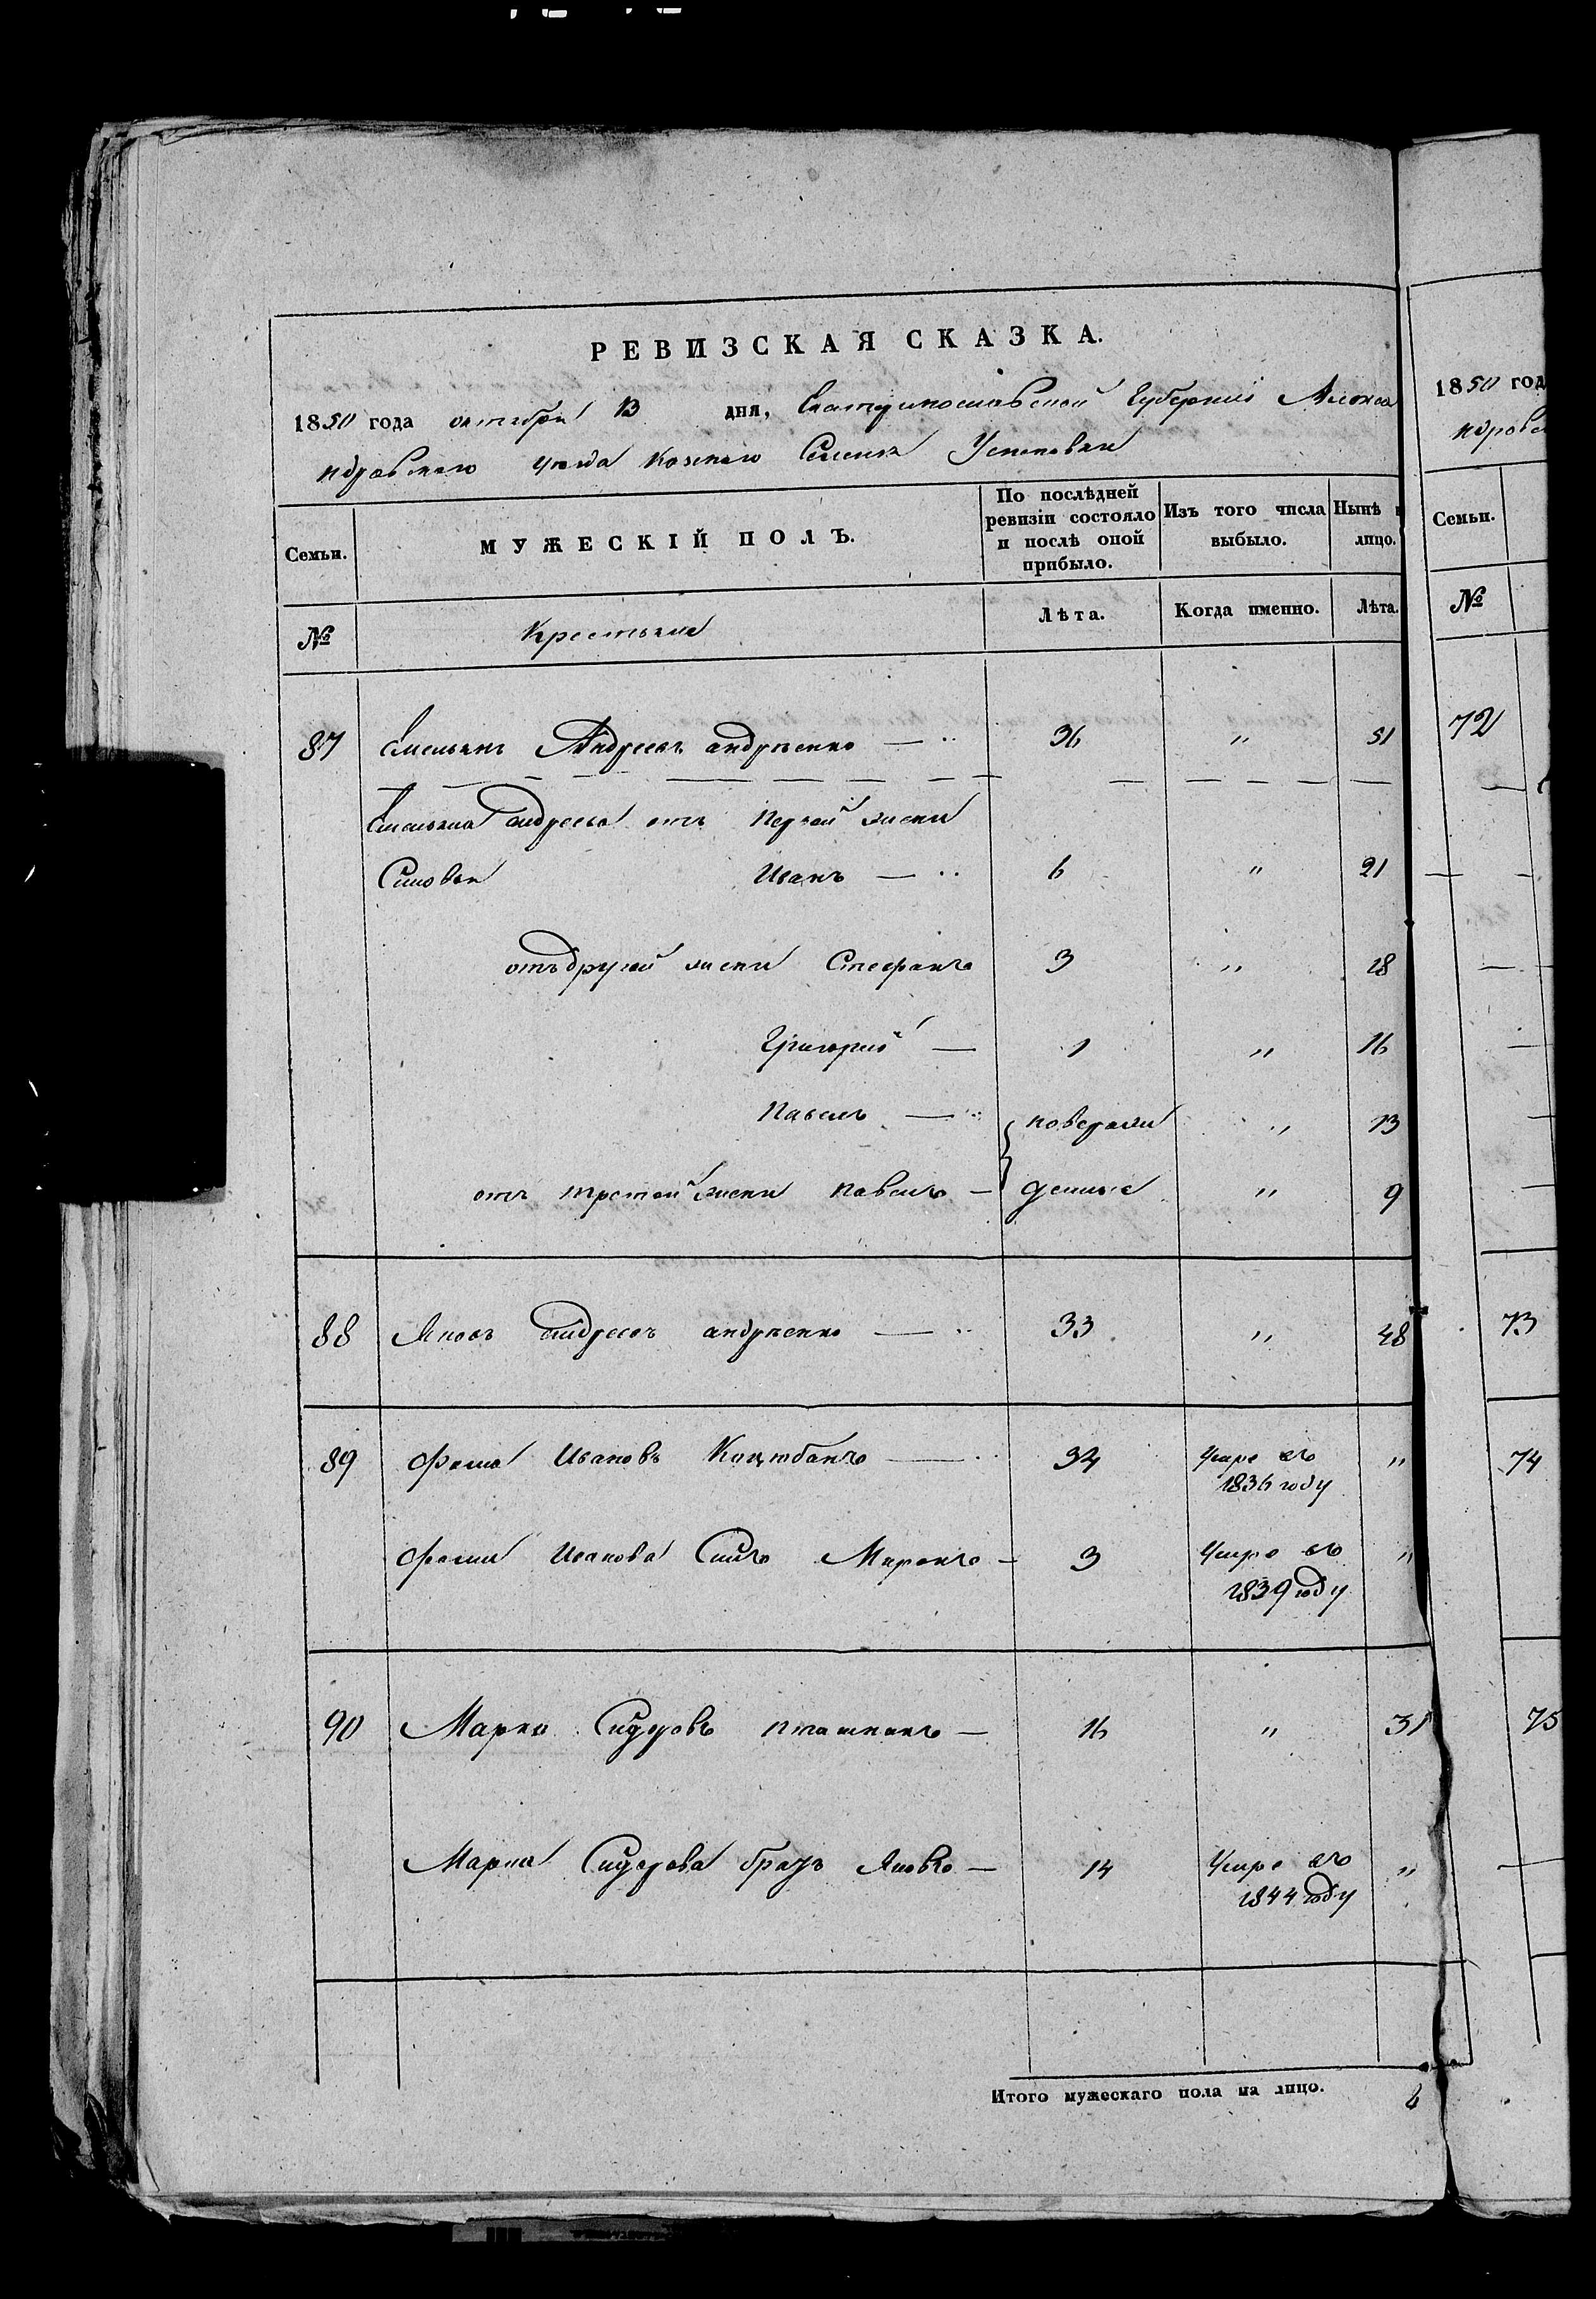 РЕВИЗСКАЯ СКАЗКА.
1850 года октября 13 дня, Екатеринославской Губернии Алекса
ндровского уезда Казенного Селения Успеновки
Семьи. МУЖЕСКІЙ ПОЛЪ. По послѣдней ревизіи состояло и послѣ оной прибыло. Изъ того числа выбыло. Нынѣ лицо.
№ Крестьяне Лѣта. Когда именно. Лѣта.
87 Емельянъ Андреевъ андреенко — 36 " 51
Емельяна андреева отъ первой жены
Сыновья Иванъ — 6 " 21
отъ другой жены Стефанъ 3 " 18
Григорий — 1 " 16
Павелъ — после реви " 13
отъ третей жены Павелъ — " 9
88 Яковъ андреевъ андреенко — 33 " 48
89 Фома Ивановъ Коцюбанъ — 34 Умре въ "
1836 году
Фомы Иванова Сынъ Миронъ — 3 Умре въ "
1839 году
90 Марко Сидоровъ пташникъ — 16 " 31
Марка Сидорова братъ Яковъ — 14 Умре въ "
1844 году
Итого мужескаго пола на лицо. 6
1850 год
ндровс
Семьи.
№
72
73
74
75